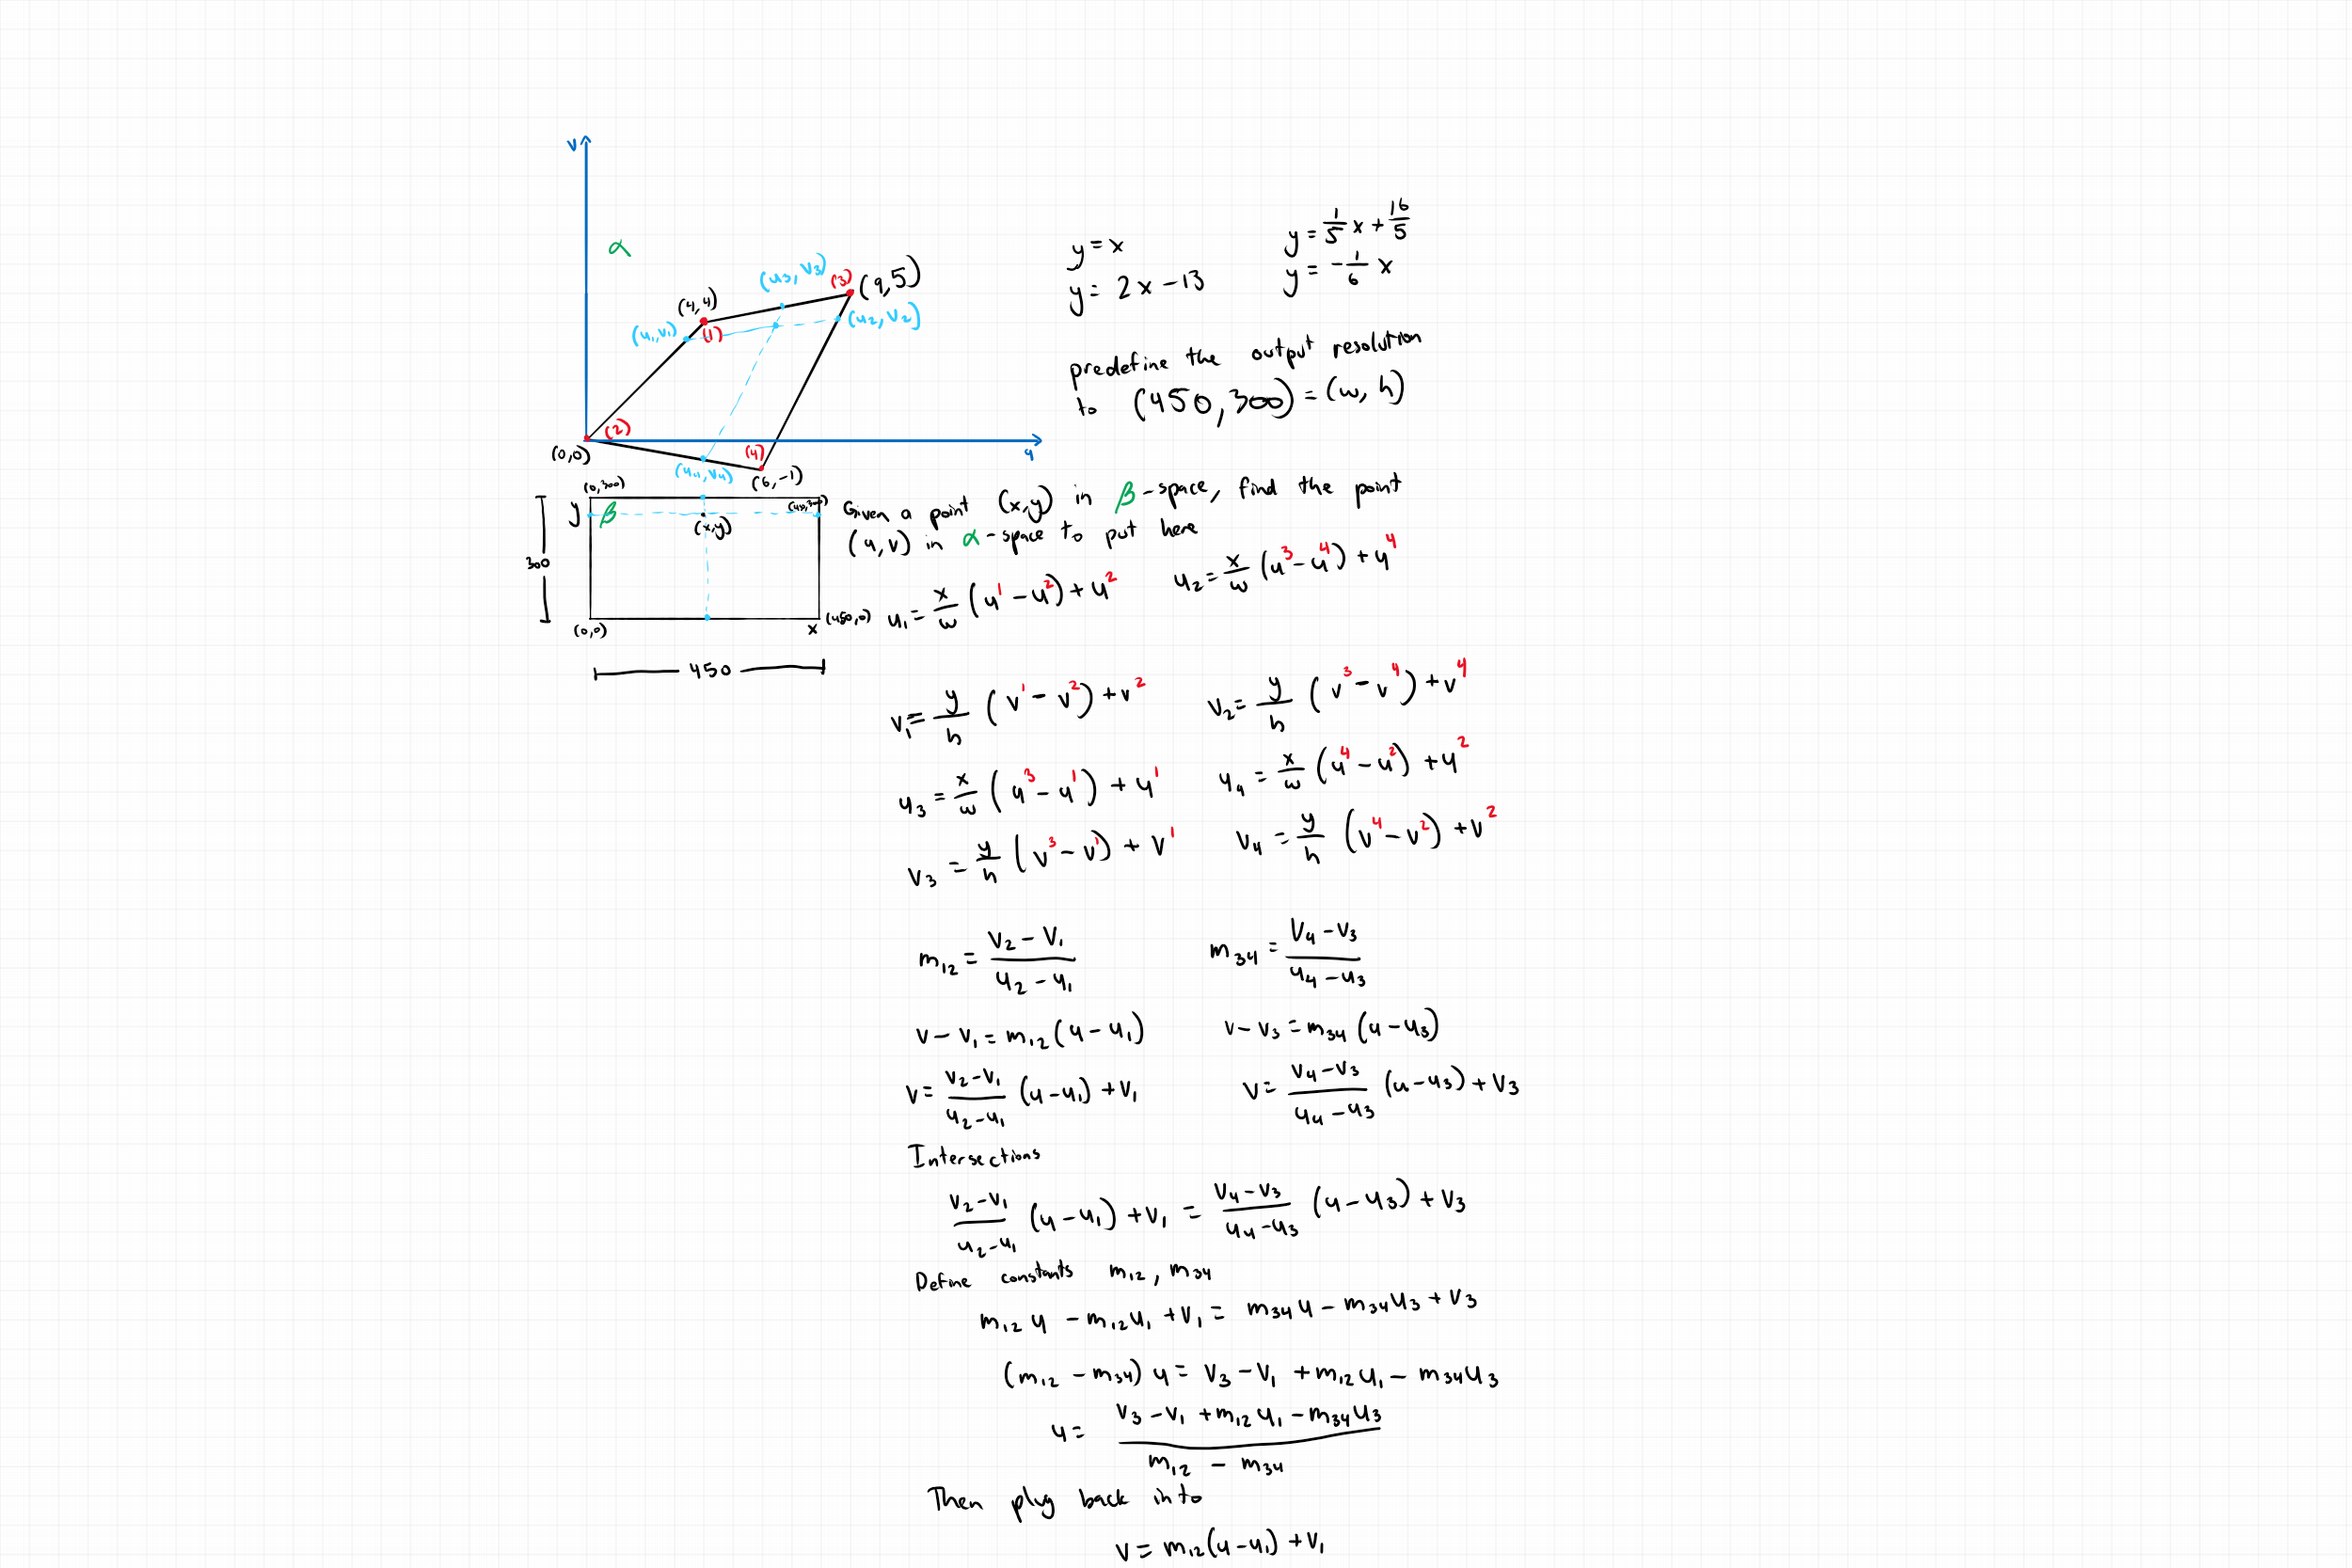 v
α
(u₃, v₃) (3) (9,5)
(4,4)
(u₁,v₁) (1) (u₂, v₂)
(2)
(0,0)
(4)
u
(u₄, v₄) (6,-1)
y = x
y = 2x - 13
y = 1/5 x + 16/5
y = -1/6 x
predefine the output resolution
to (450,300) = (w, h)
(0,300) (450,300)
y β (x,y)
300
(0,0) x (450,0)
450
Given a point (x,y) in β-space, find the point
(u,v) in α-space to put here
u₁ = x/w (u¹ - u²) + u² u₂ = x/w (u³ - u⁴) + u⁴
v₁ = y/h (v¹ - v²) + v² v₂ = y/h (v³ - v⁴) + v⁴
u₃ = x/w (u³ - u¹) + u¹ u₄ = x/w (u⁴ - u²) + u²
v₃ = y/h (v³ - v¹) + v¹ v₄ = y/h (v⁴ - v²) + v²
m₁₂ = (v₂ - v₁)/(u₂ - u₁) m₃₄ = (v₄ - v₃)/(u₄ - u₃)
v - v₁ = m₁₂(u - u₁) v - v₃ = m₃₄(u - u₃)
v = (v₂-v₁)/(u₂-u₁) (u-u₁) + v₁ v = (v₄-v₃)/(u₄-u₃) (u-u₃) + v₃
Intersections
(v₂-v₁)/(u₂-u₁) (u-u₁) + v₁ = (v₄-v₃)/(u₄-u₃) (u-u₃) + v₃
Define constants m₁₂, m₃₄
m₁₂u - m₁₂u₁ + v₁ = m₃₄u - m₃₄u₃ + v₃
(m₁₂ - m₃₄) u = v₃ - v₁ + m₁₂u₁ - m₃₄u₃
u = (v₃ - v₁ + m₁₂u₁ - m₃₄u₃)/(m₁₂ - m₃₄)
Then plug back into
v = m₁₂(u-u₁) + v₁